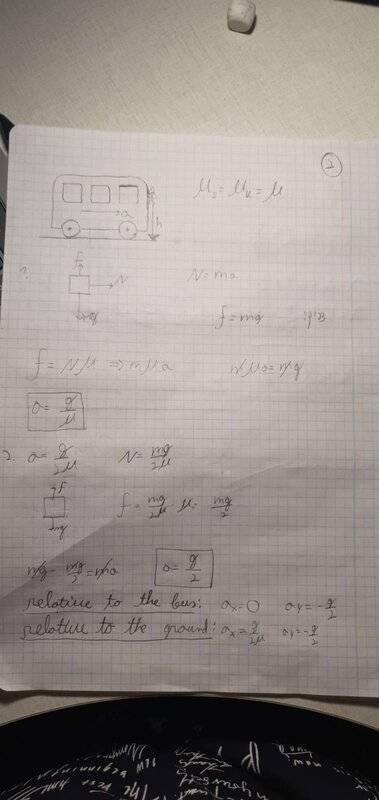 2
μs = μk = μ
a
h
1.
f
N
mg
N = ma
f = mg
f = Nμ ⇒ mμa
mμa = mg
a = g/μ
2. a = g/2μ
N = mg/2μ
f
mg
f = mg/2μ · μ = mg/2
mg - mg/2 = ma
a = g/2
relative to the bus: ax = 0 ay = -g/2
relative to the ground: ax = g/2μ ay = -g/2